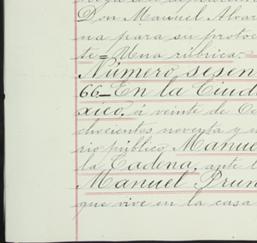 Don Manuel Alvar
na para su protoc
te= Una rúbrica.=
Número sesen
66_ En la Ciud
xico, á veinte de Oc
chocientos noventa y
rio público Manue
la Cadena, ante
Manuel Prun
que vive en la casa